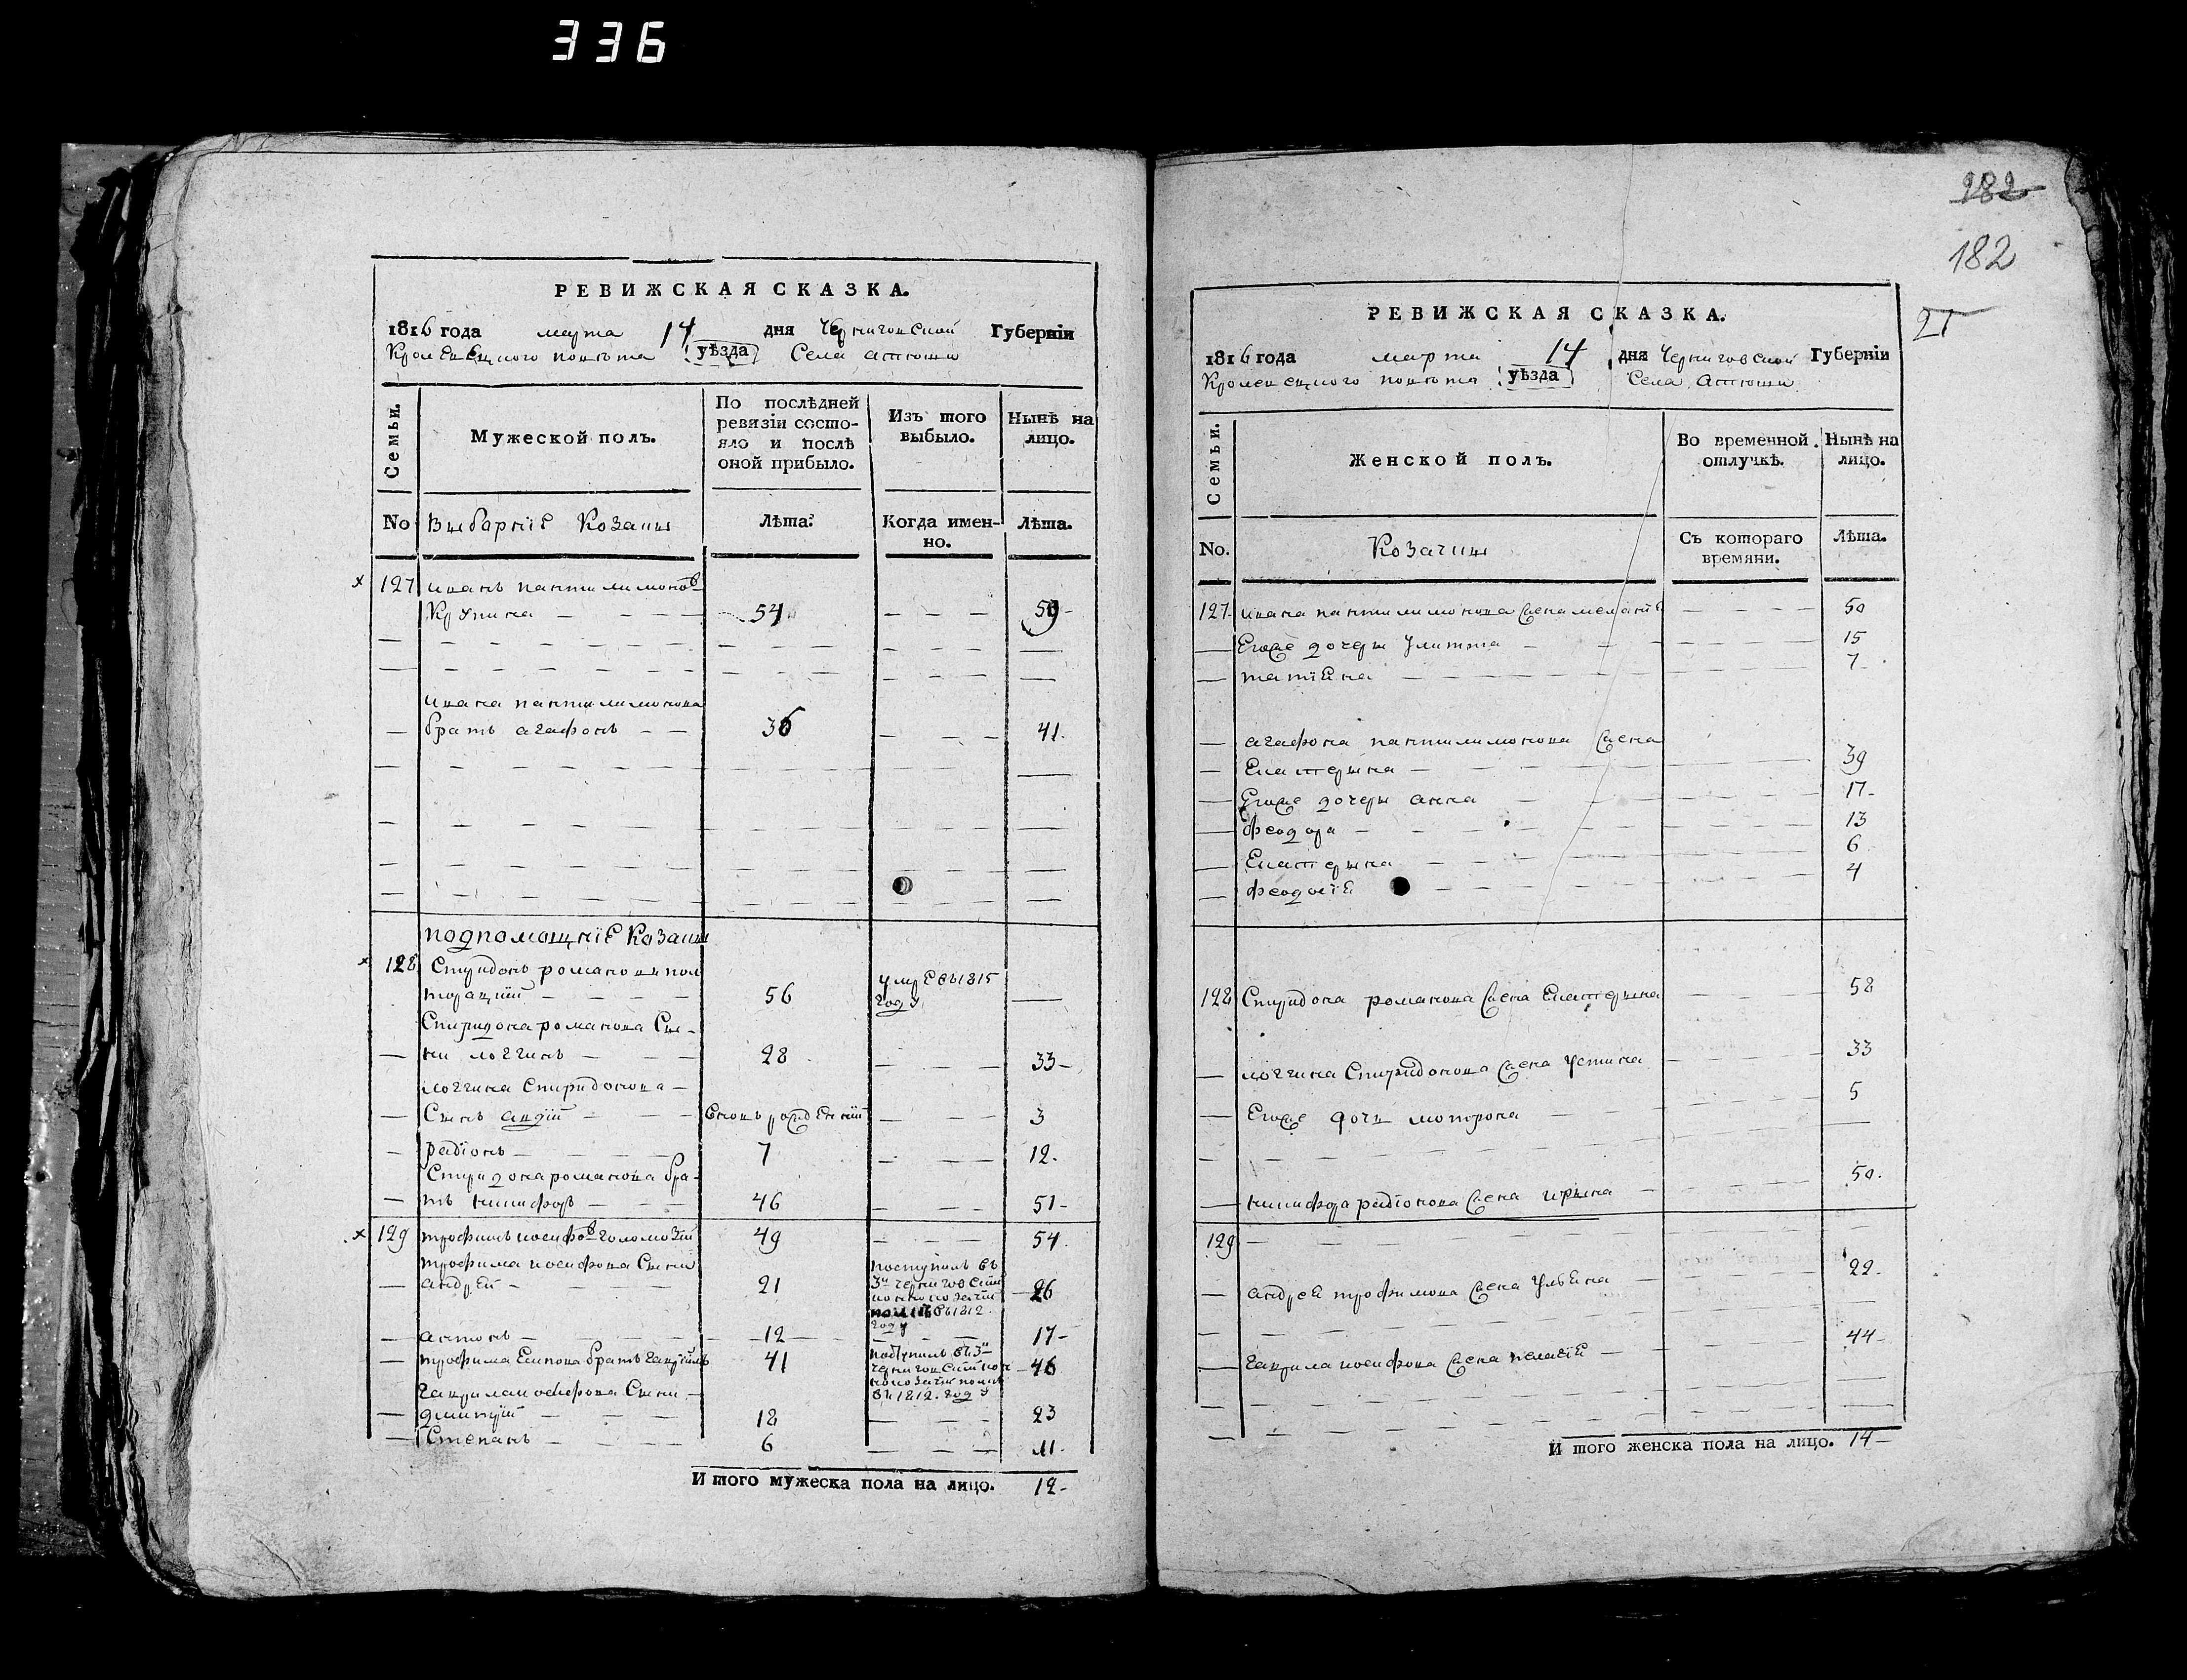 336
РЕВИЖСКАЯ СКАЗКА.
1816 года марта 14 дня Черниговской Губерніи
Кролевецкого повѣта уѣзда Села атюши
Семьи.
Мужеской полъ.
По послѣдней ревязіи состо-
яло и послѣ
оной прибыло.
Изъ того
выбыло.
Нынѣ на
лицо.
No Выборніе Козаки
Лѣта.
Когда имен-
но.
Лѣта.
127 иванъ пантилимоновъ
Крупика 54 59
ивана пантилимонова
братъ агафонъ 36 41.
подпомощніе Козаки
128 Спиридонъ романовъ пол
торацкій 56 умре въ 1815 году
Спиридона романова Сы-
ни логгинъ 28 33
логгина Спиридонова
Сынъ авдій вновь рожденній 3
радіонъ 7 12.
Спиридона романова бра-
тъ никифоръ 46 51
129 трофимъ иосифовъ голомозій 49 54
трофима иосифова Сыни
андрей 21 поступилъ въ 3й черниговскій конно козачій полкъ въ 1812. году 26
антонъ 12 17
трофима Есипова братъ гаврійлъ 41 поступилъ въ 3й черниговскій конно козачій полкъ въ 1812. году 46
гаврила иосифова Сыни
дмитрій 18 23
Степанъ 6 11.
И того мужеска пола на лицо. 12
282
182
РЕВИЖСКАЯ СКАЗКА.
1816 года марта 14 дня Черниговской Губерніи
Кролевецкого повѣта уѣзда Села Атюши
Семьи.
Женской полъ.
Во временной
отлучкѣ.
Нынѣ на
лицо.
No. Козачки
Съ котораго
времяни.
Лѣта.
127. ивана пантилимонова жена меланія 50
Егоже дочери улитта 15
татіена 7
агафона пантилимонова жена
Екатерина 39
Егоже дочери анна 17
феодора 13
Екатерина 6
феодосіе 4
128 Спиридона романова жена Екатерина 58
логгина Спиридонова жена устина 33
Егоже дочь мотрона 5
никифора радіонова жена ирина 50.
129
андрея трофимова жена ульяна 22
гаврила иосифова жена пелагіе 44
И того женска пола на лицо. 14